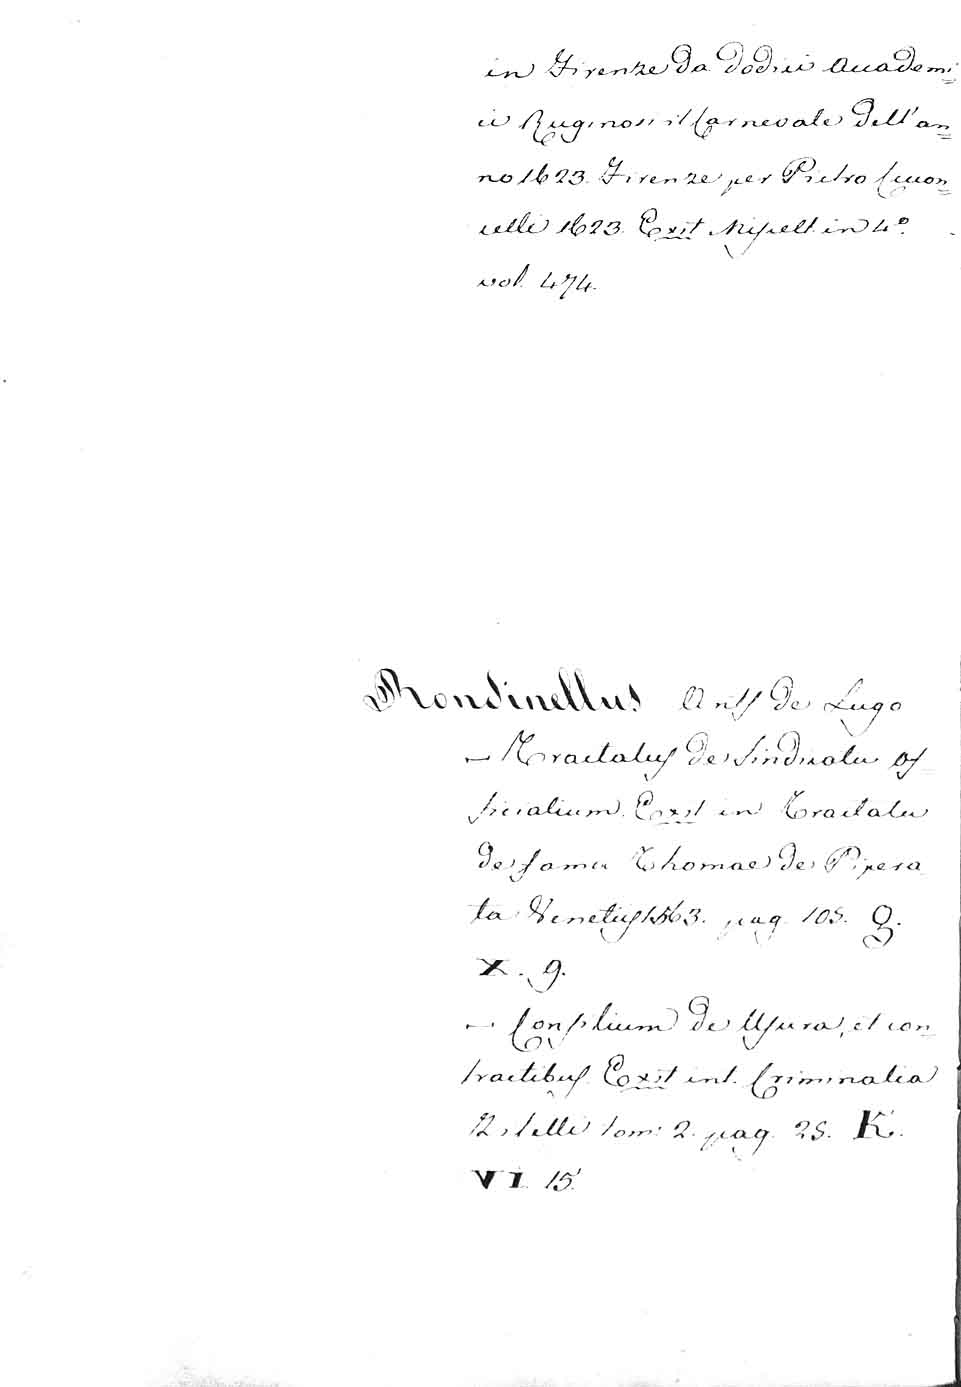 in Firenze da dodici Accademi=
ci Ruginosi il Carnevale dell'an=
no 1623. Firenze per Pietro Cecon=
celli 1623. Exst Miscell. in 4°.
vol. 474.
Rondinellus Ants de Lugo
— Tractatus de Sindicatu of=
ficialium. Exst in Tractatu
de fama Thomae de Pipera
ta Venetiis 1563. pag. 105. Q.
X. 9.
— Consilium de Usura, et con=
tractibus. Exst int. Criminalia
Ziletti tom: 2. pag. 25. K.
VI. 15.